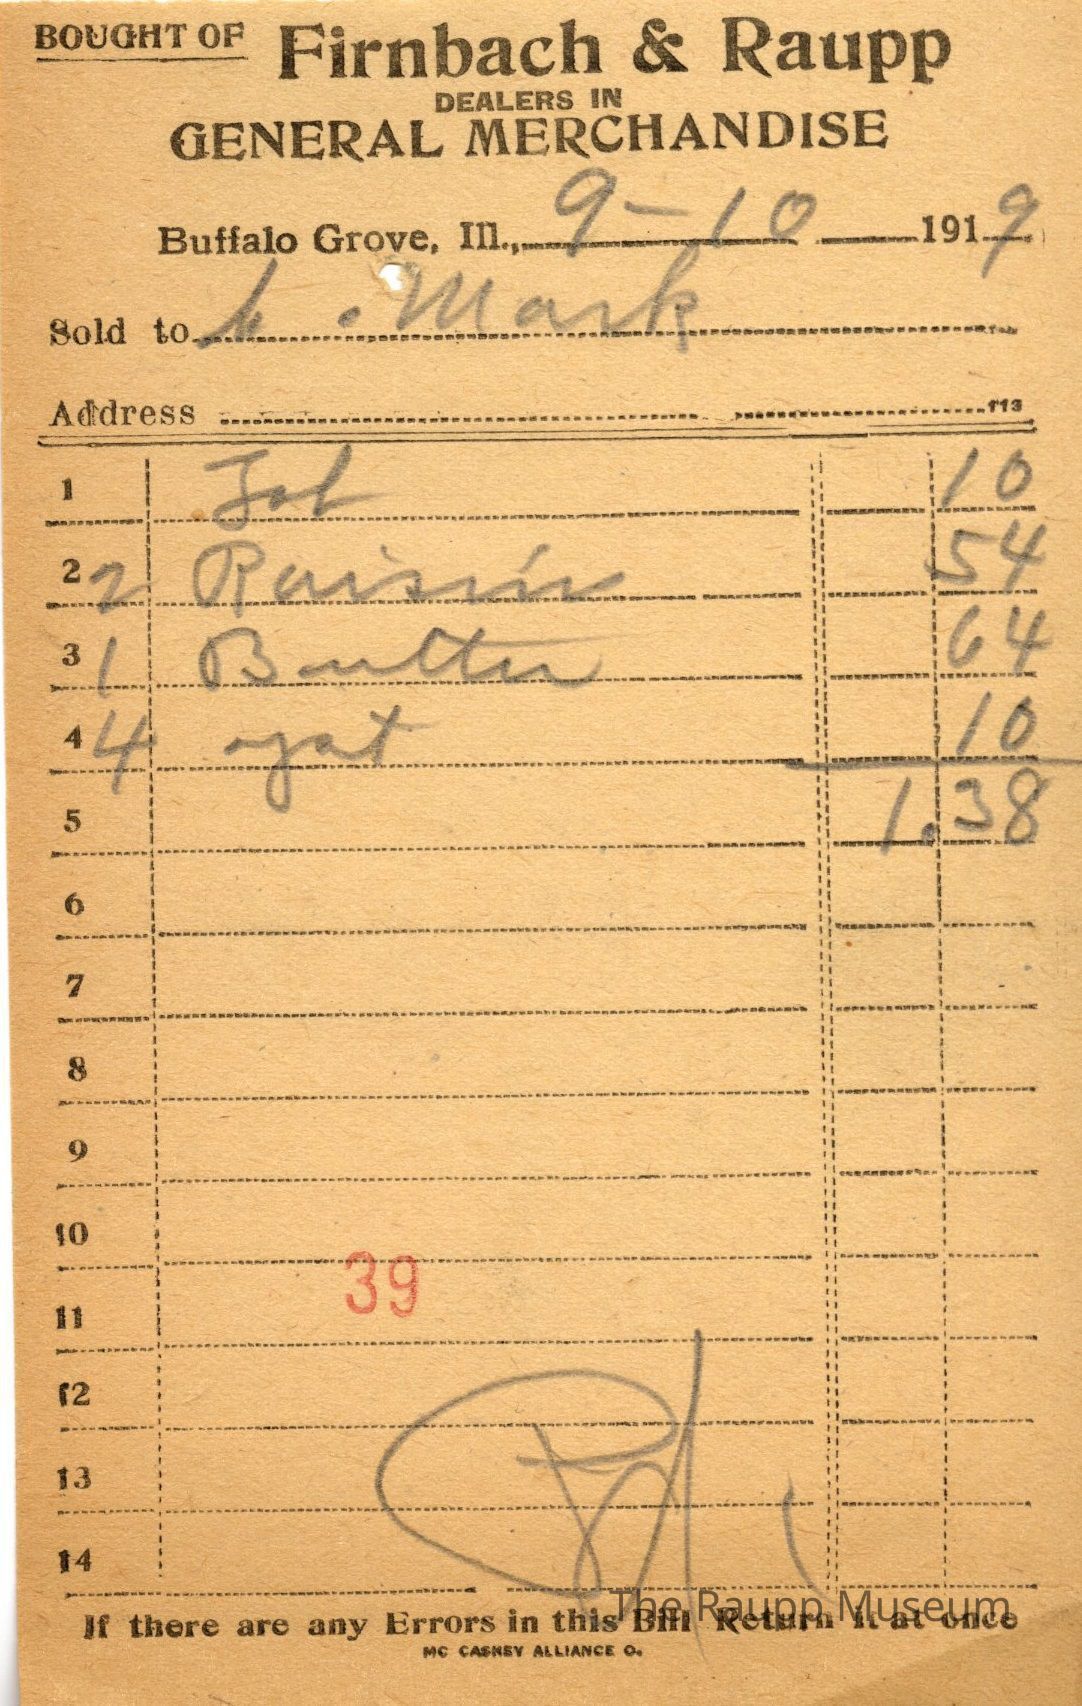 BOUGHT OF Firnbach & Raupp
DEALERS IN
GENERAL MERCHANDISE
Buffalo Grove, Ill., 9-10 1919
Sold to . Mark
Address 113
1 10
2 2 Raisin 54
3 1 Butter 64
4 4 10
5 1.38
6
7
8
9
10
39
11
12
13
14
The Raupp Museum
If there are any Errors in this Bill Return it at once
MC CASKEY ALLIANCE O.